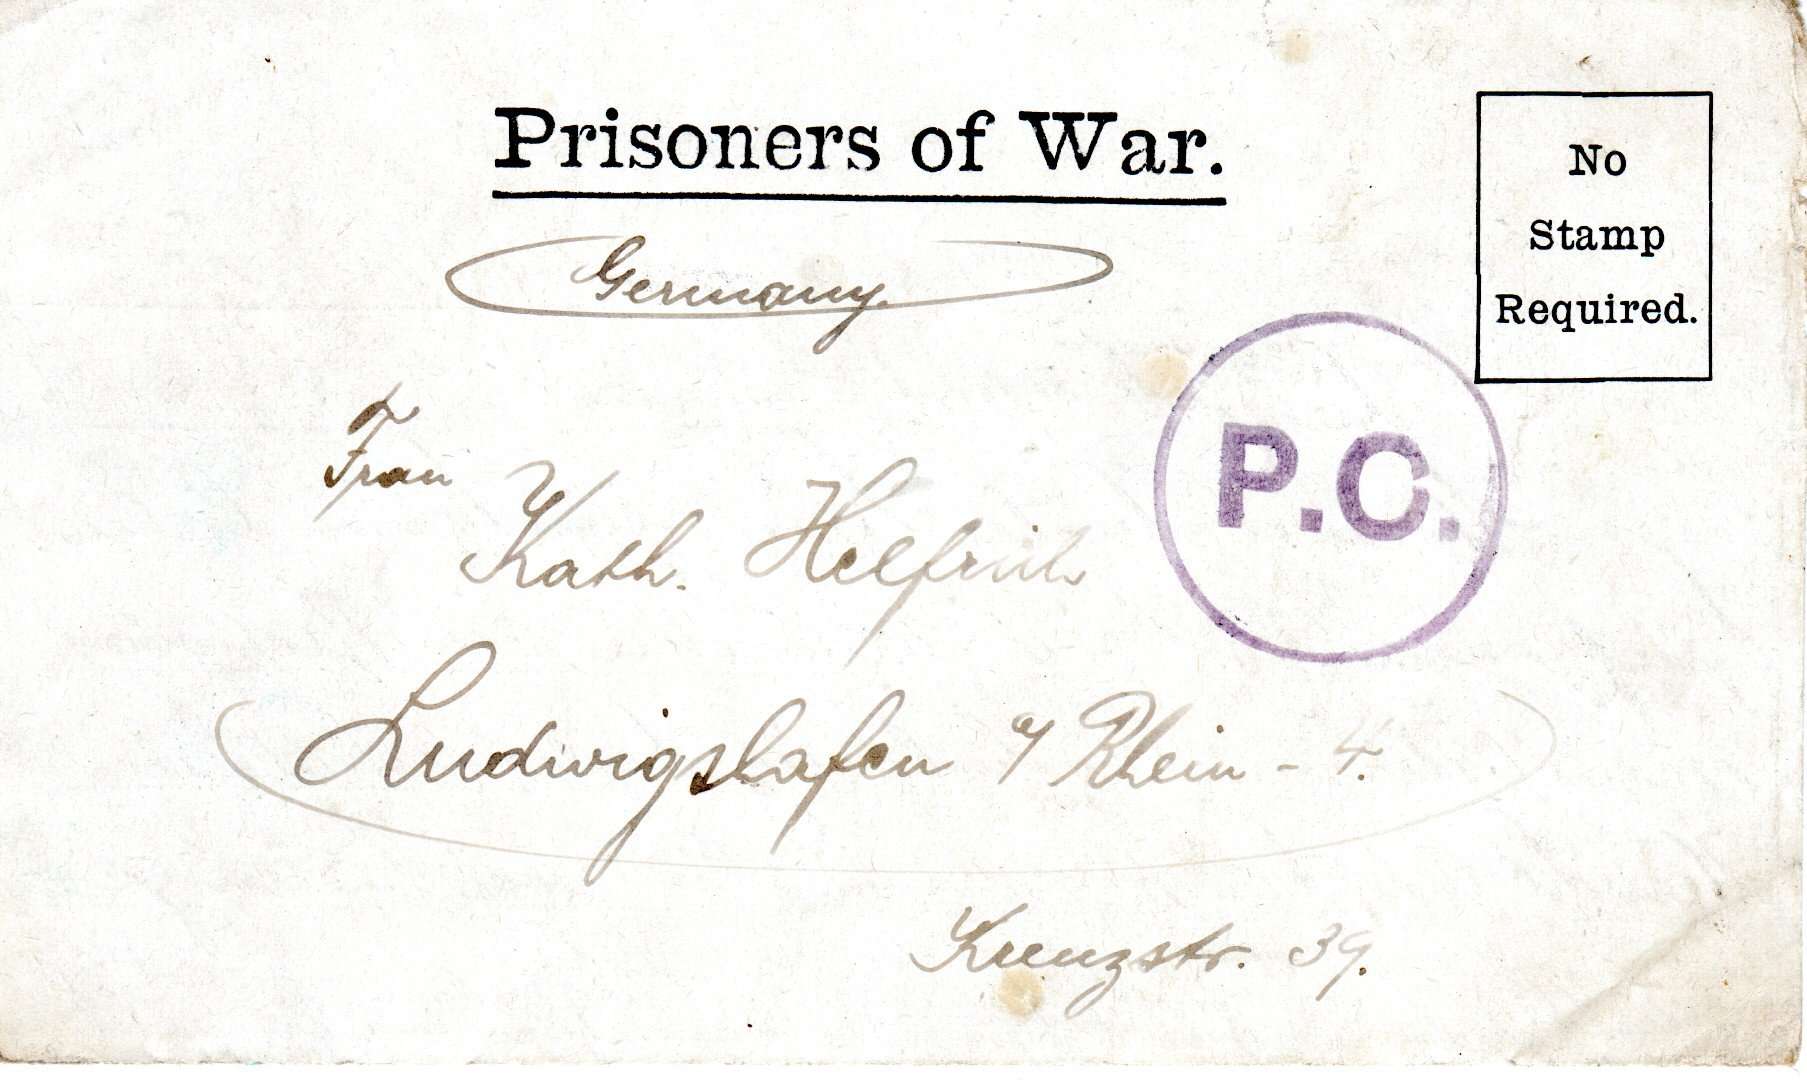 Prisoners of War.
No
Stamp
Required.
Germany.
P.C.
Frau
Kath. Helfrich
Ludwigshafen a/ Rhein - 4.
Kreuzstr. 39.